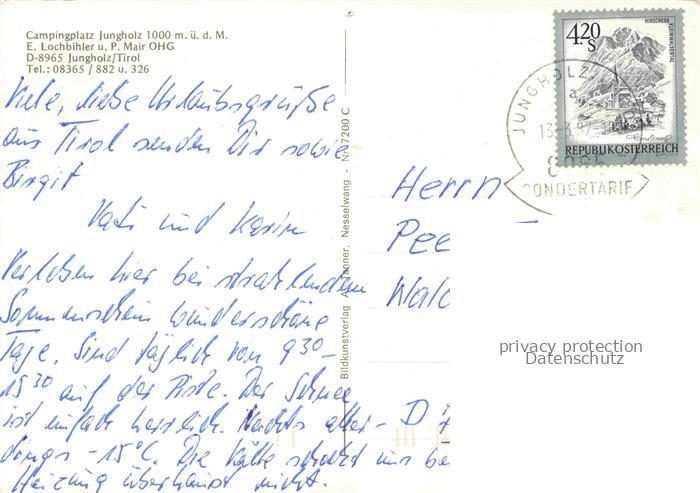 Campingplatz Jungholz 1000 m. ü. d. M.
E. Lochbihler u. P. Mair OHG
D-8965 Jungholz/Tirol
Tel.: 08365 / 882 u. 326
Viele, liebe Urlaubsgrüße
aus Tirol senden Dir sowie
Birgit
Vati und Karin
Verleben hier bei strahlendem
Sonnenschein wunderschöne
Tage. Sind täglich von 9 30 -
15 30 auf der Piste. Der Schnee
ist einfach herrlich. Nachts aller-
dings -15°C. Die Kälte stört uns bei
Heizung überhaupt nicht.
Bildkunstverlag A. Nesselwang - Nr. 7200 C
HIRSCHEGG
KLEINWALSERTAL
4.20
S
REPUBLIK ÖSTERREICH
JUNGHOLZ
a
SONDERTARIF
Herrn
Pee
Wald
D
privacy protection
Datenschutz